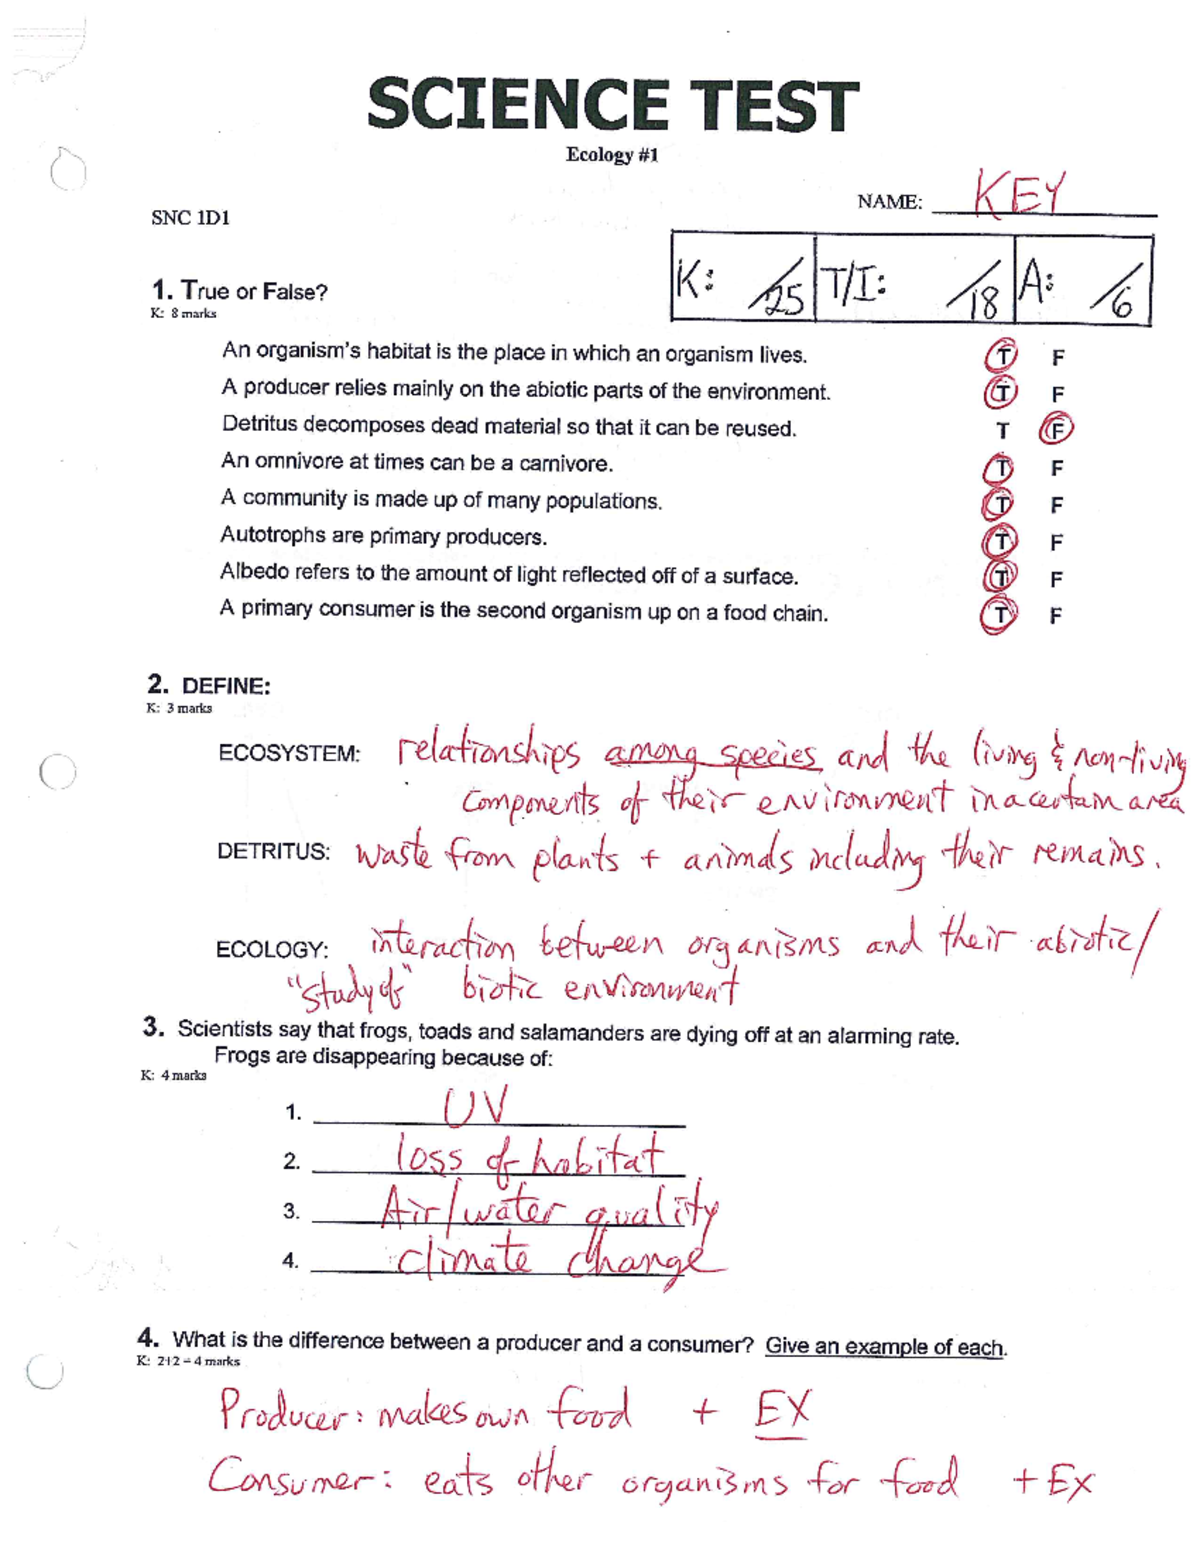 SCIENCE TEST
Ecology #1
NAME: KEY
SNC 1D1
K: /25 T/I: /18 A: /6
1. True or False?
K: 8 marks
An organism's habitat is the place in which an organism lives. T F
A producer relies mainly on the abiotic parts of the environment. T F
Detritus decomposes dead material so that it can be reused. T F
An omnivore at times can be a carnivore. T F
A community is made up of many populations. T F
Autotrophs are primary producers. T F
Albedo refers to the amount of light reflected off of a surface. T F
A primary consumer is the second organism up on a food chain. T F
2. DEFINE:
K: 3 marks
ECOSYSTEM: relationships among species and the living & non-living
components of their environment in a certain area
DETRITUS: waste from plants + animals including their remains.
ECOLOGY: interaction between organisms and their abiotic/
"study of" biotic environment
3. Scientists say that frogs, toads and salamanders are dying off at an alarming rate.
Frogs are disappearing because of:
K: 4 marks
1. UV
2. loss of habitat
3. Air/water quality
4. climate change
4. What is the difference between a producer and a consumer? Give an example of each.
K: 2+2 = 4 marks
Producer: makes own food + EX
Consumer: eats other organisms for food + EX